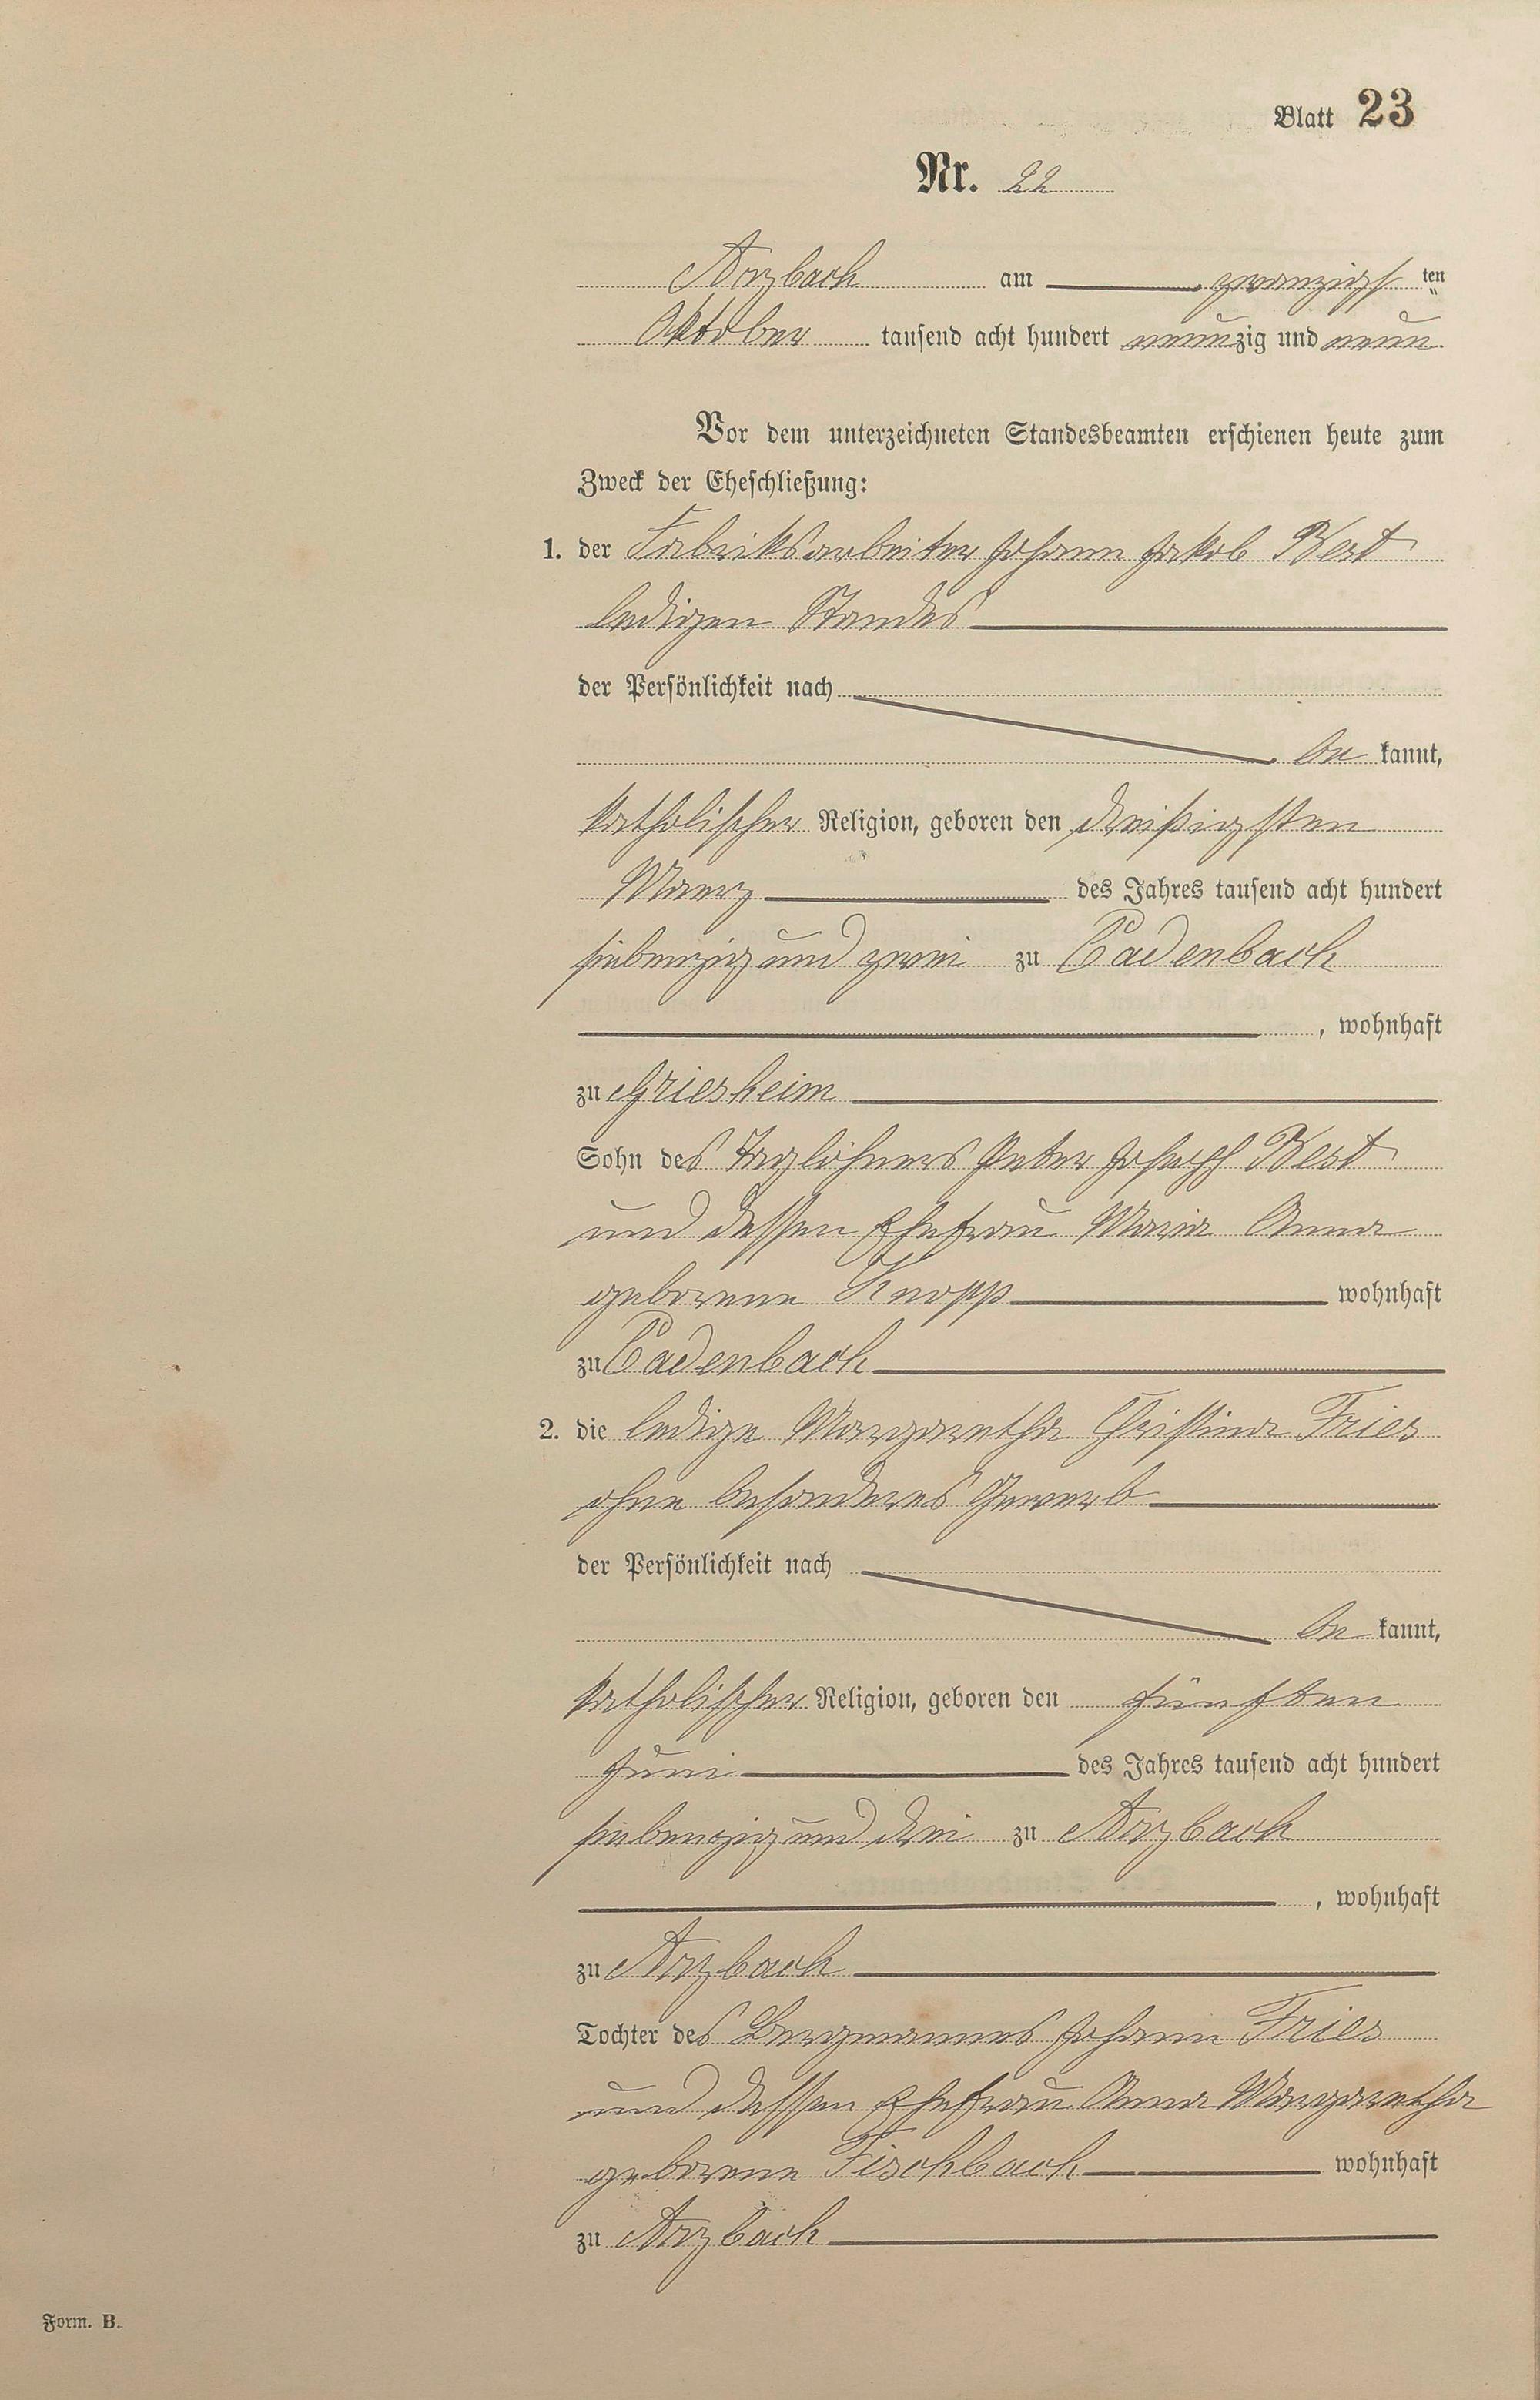 Blatt 23
Nr. 22
Arzbach am zwanzigsten
Oktober tausend acht hundert neunzig und neun
Vor dem unterzeichneten Standesbeamten erschienen heute zum
Zweck der Eheschließung:
1. der Fabriksarbeiter Johann Jakob Best
ledigen Standes
der Persönlichkeit nach
be kannt,
katholischer Religion, geboren den dreißigsten
Maerz des Jahres tausend acht hundert
siebenzig und zwei zu Cadenbach
, wohnhaft
zu Griesheim
Sohn des Taglöhners Peter Joseph Best
und dessen Ehefrau Maria Anna
geborene Knopp wohnhaft
zu Cadenbach
2. die ledige Margaretha Christina Fries
ohne besonderes Gewerb
der Persönlichkeit nach
be kannt,
katholischer Religion, geboren den fünften
Juni des Jahres tausend acht hundert
siebenzig und drei zu Arzbach
, wohnhaft
zu Arzbach
Tochter des Bergmannes Johann Fries
und dessen Ehefrau Anna Margaretha
geborene Fischbach wohnhaft
zu Arzbach
Form. B.